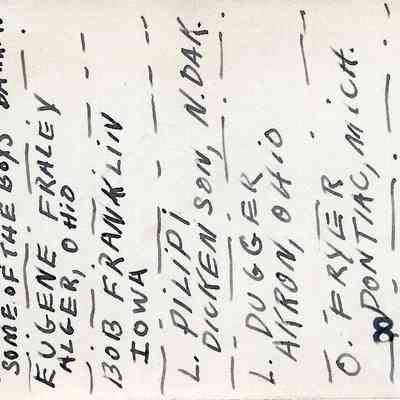 SOME OF THE BOYS
EUGENE FRALEY
ALGER, OHIO
BOB FRANKLIN
IOWA
L. PILIPI
DICKENSON, N. DAK.
L. DUGGER
AKRON, OHIO
O. FRYER
PONTIAC, MICH.
8